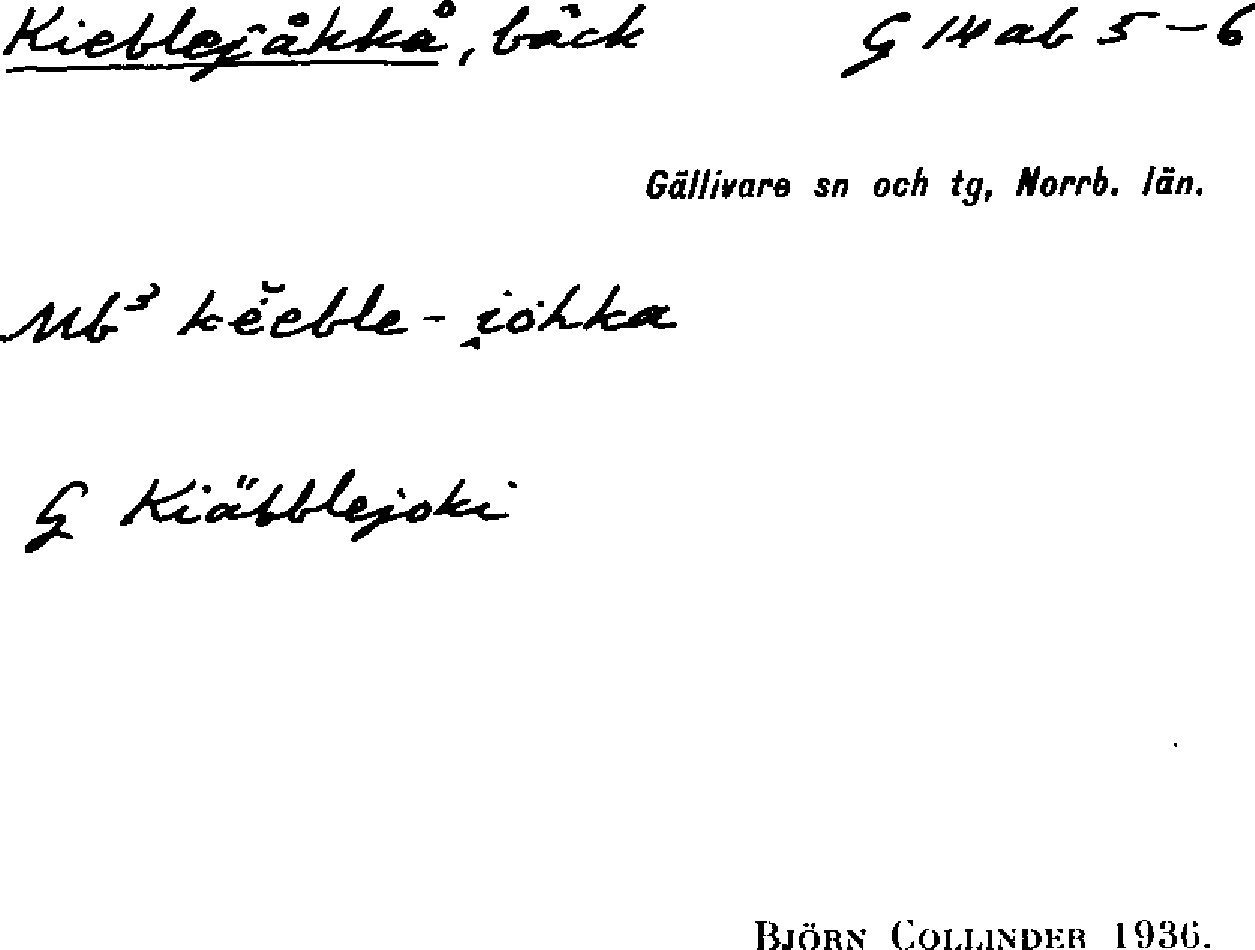 Kieblejåkkå, bäck G 14 ab 5-6
Gällivare sn och tg, Norrb. län.
Mb³ kĕ̇eble-i̯ohka
G Kiäbblejoki
BJÖRN COLLINDER 1936.